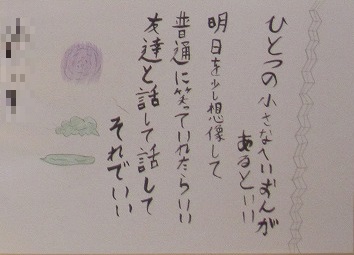 ひとつの小さなへいおんが
あるといい
明日を少し想像して
普通に笑っていれたらいい
友達と話して話して
それでいい